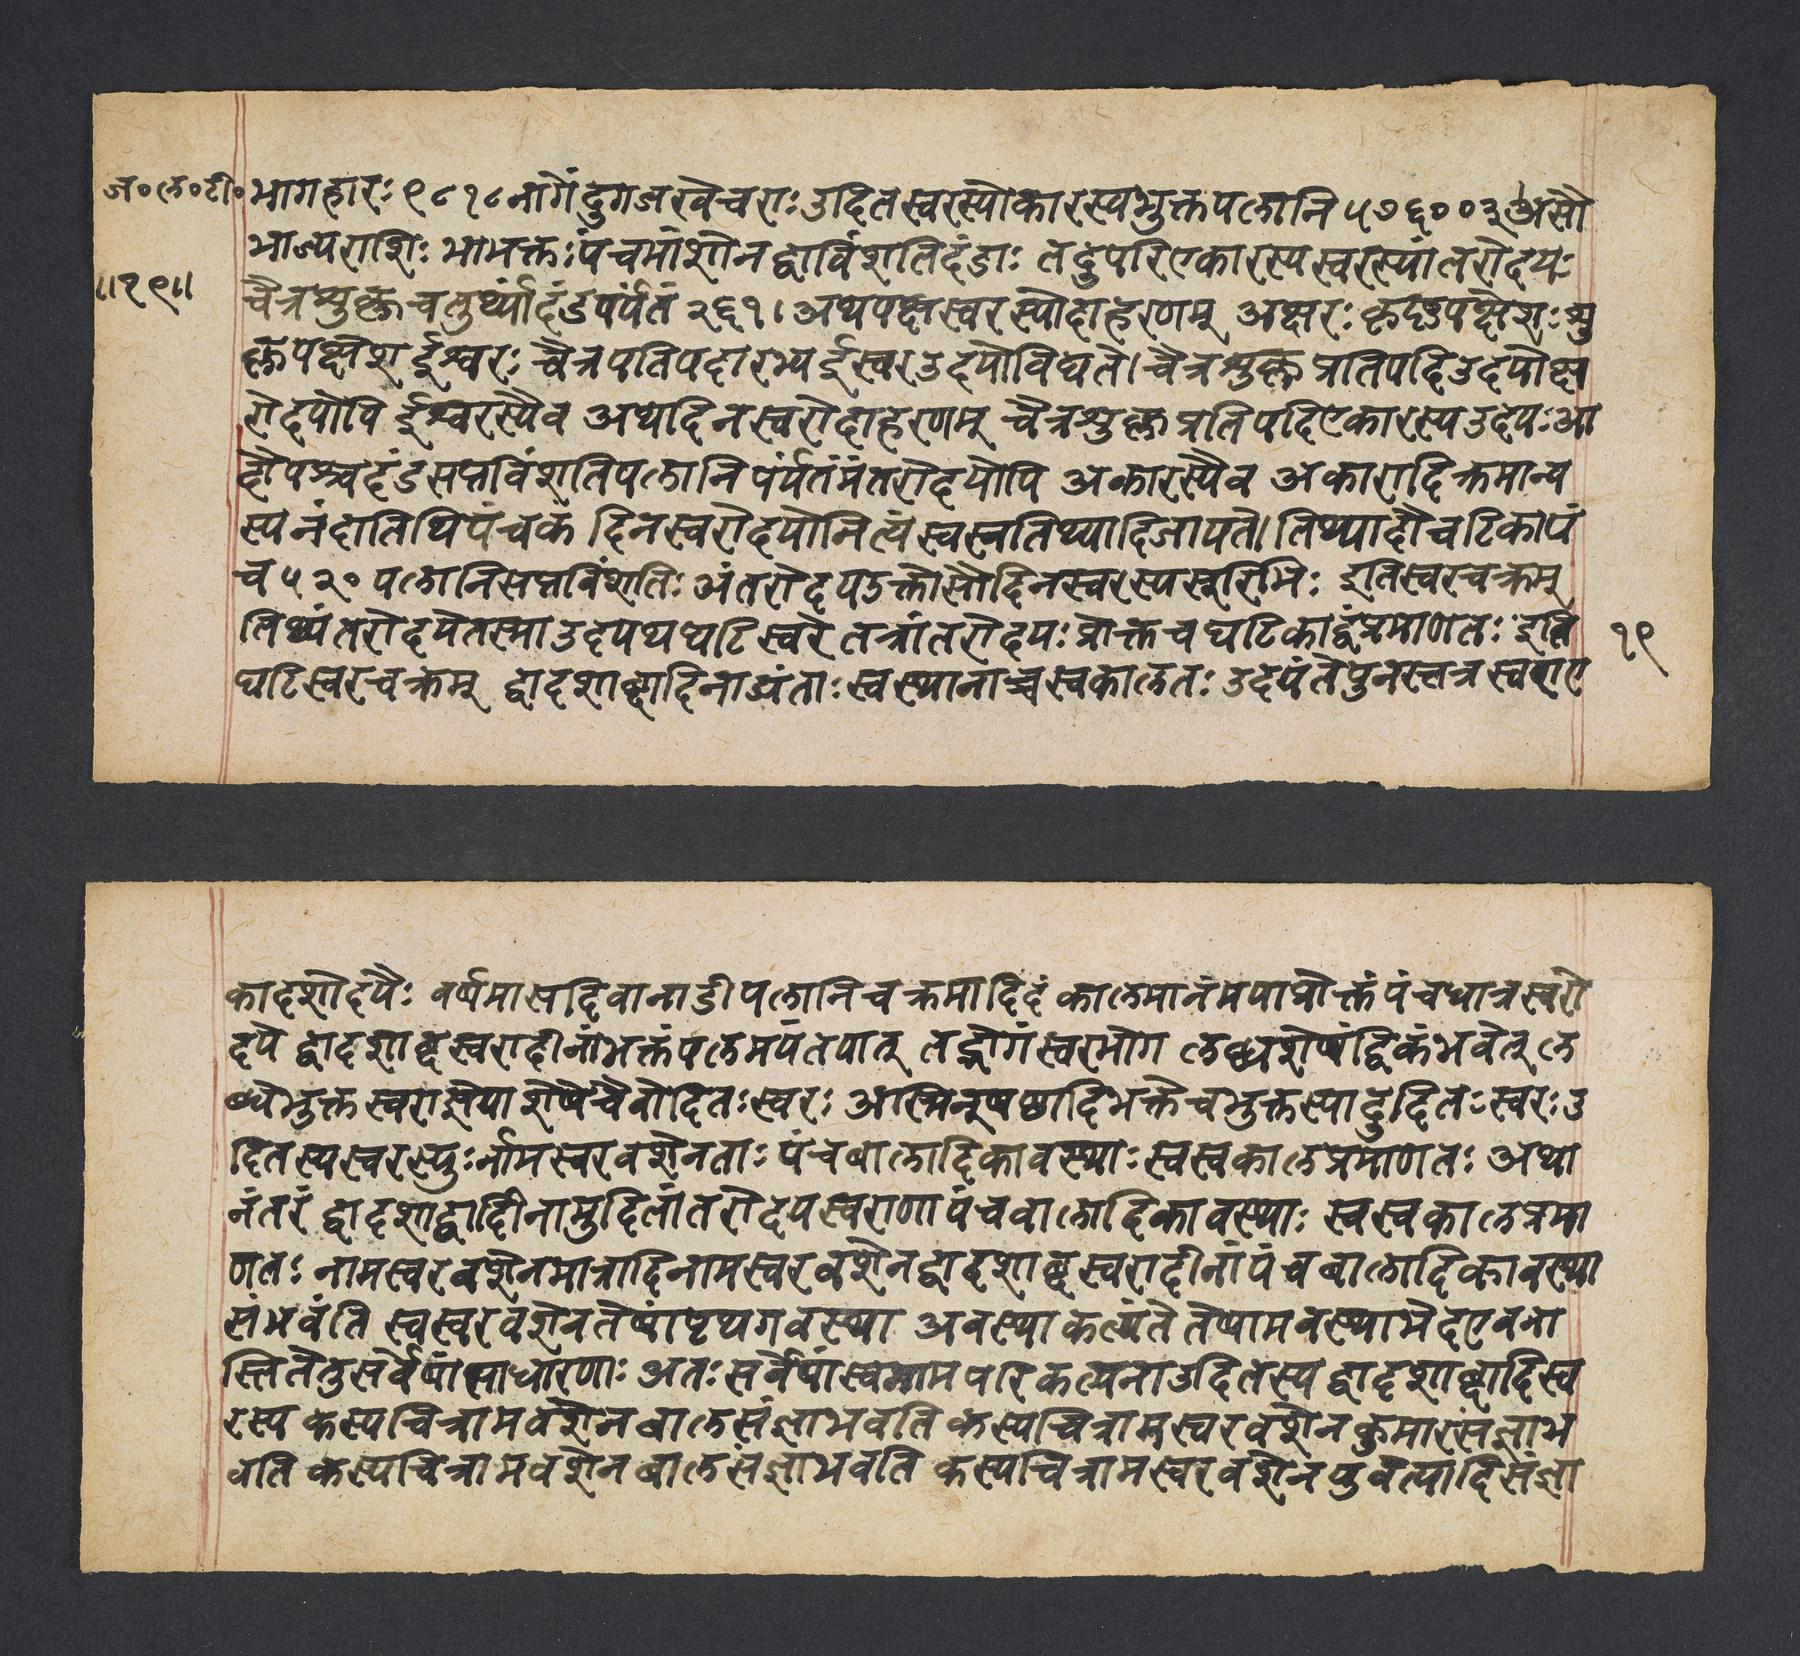 ज॰ल॰टी॰
॥१९॥
भागहारः ९८१८ नागेंदुगजखेचराः उदितस्वरस्यौकारस्यभुक्तपलानि ५७६००३ असौ
भाज्यराशिः भाभक्तः पंचमांशोन द्वाविंशतिदंडाः तदुपरिएकारस्यस्वरस्यांतरोदयः
चैत्रशुक्लचतुर्थ्यां दंडपर्यंतं २६१। अथपक्षस्वरस्योदाहरणम् अक्षरः कृष्णपक्षेशः शु
क्लपक्षेश ईश्वरः चैत्रपतिपदारभ्य ईस्वर उदयोविद्यते। चैत्रशुक्लप्रतिपदि उदयोक्ष
रोदयोपि ईश्वरस्यैव अथदिनस्वरोदाहरणम् चैत्रशुक्लप्रतिपदिएकारस्य उदयः आ
दौपञ्चदंडसप्तविंशतिपलानि पर्यंतमंतरोदयोपि अकारस्यैव अकारादिक्रमान्य
स्यनंदातिथिपंचकं दिनस्वरोदयोनित्यं स्वस्वतिथ्यादिजायते। तिथ्यादौघटिकापं
च ५ २० पलानिसप्तविंशतिः अंतरोदय उक्तोसौदिनस्वरस्यसूरिभिः इतिस्वरचक्रम्
तिथ्यंतरोदयेतस्मा उदयथघटिस्वरे तत्रांतरोदयः प्रोक्तच घटिकार्द्धप्रमाणतः इति
घटिस्वरचक्रम् द्वादशाब्दादिनाड्यंताः स्वस्थानाच्चस्वकालतः उदयंतेपुनस्तत्रस्वराए
१९
कादशोदयैः वर्षमासदिवानाडीपलानिचक्रमादिदं कालमानंमयाप्रोक्तं पंचधात्रस्वरो
दये द्वादशाब्दस्वरादीनांभक्तं पलमयंतथातु तद्भोगंस्वरभोग लब्धशेषंद्विकंभवेत् ल
ब्धेभुक्तस्वराज्ञेयाशेषेचैवोदितः स्वरः अस्मिन्षष्ठादिभक्तेचभुक्तस्यादुदितः स्वरः उ
दितस्यस्वरस्युः र्नामस्वरवशेनताः पंचबालादिकावस्थाः स्वस्वकालप्रमाणतः अथा
नंतरं द्वादशाद्वादिनामुदितांतरोदयस्वराणां पंचबालादिकावस्थाः स्वस्वकालप्रमा
णतः नामस्वरवशेनमात्रादिनामस्वरवशेनद्वादशाब्दस्वरादीनां पंचबालादिकावस्था
संभवंति स्वस्वरवशेनतेषांपृथगवस्था अवस्थाकल्प्यंते तेषामवस्थाभेदएवना
स्तितेतुसर्वेषांसाधारणाः अतः सर्वेषांस्वनामपरिकल्पना उदितस्य द्वादशाब्दादिस्व
रस्य कस्यचिन्नामवशेनबालसंज्ञाभवति कस्यचिन्नामस्वरवशेन कुमारसंज्ञाभ
वति कस्यचिन्नामवशेनबालसंज्ञाभवति कस्यचिन्नामस्वरवशेन युवेत्यादिसंज्ञा